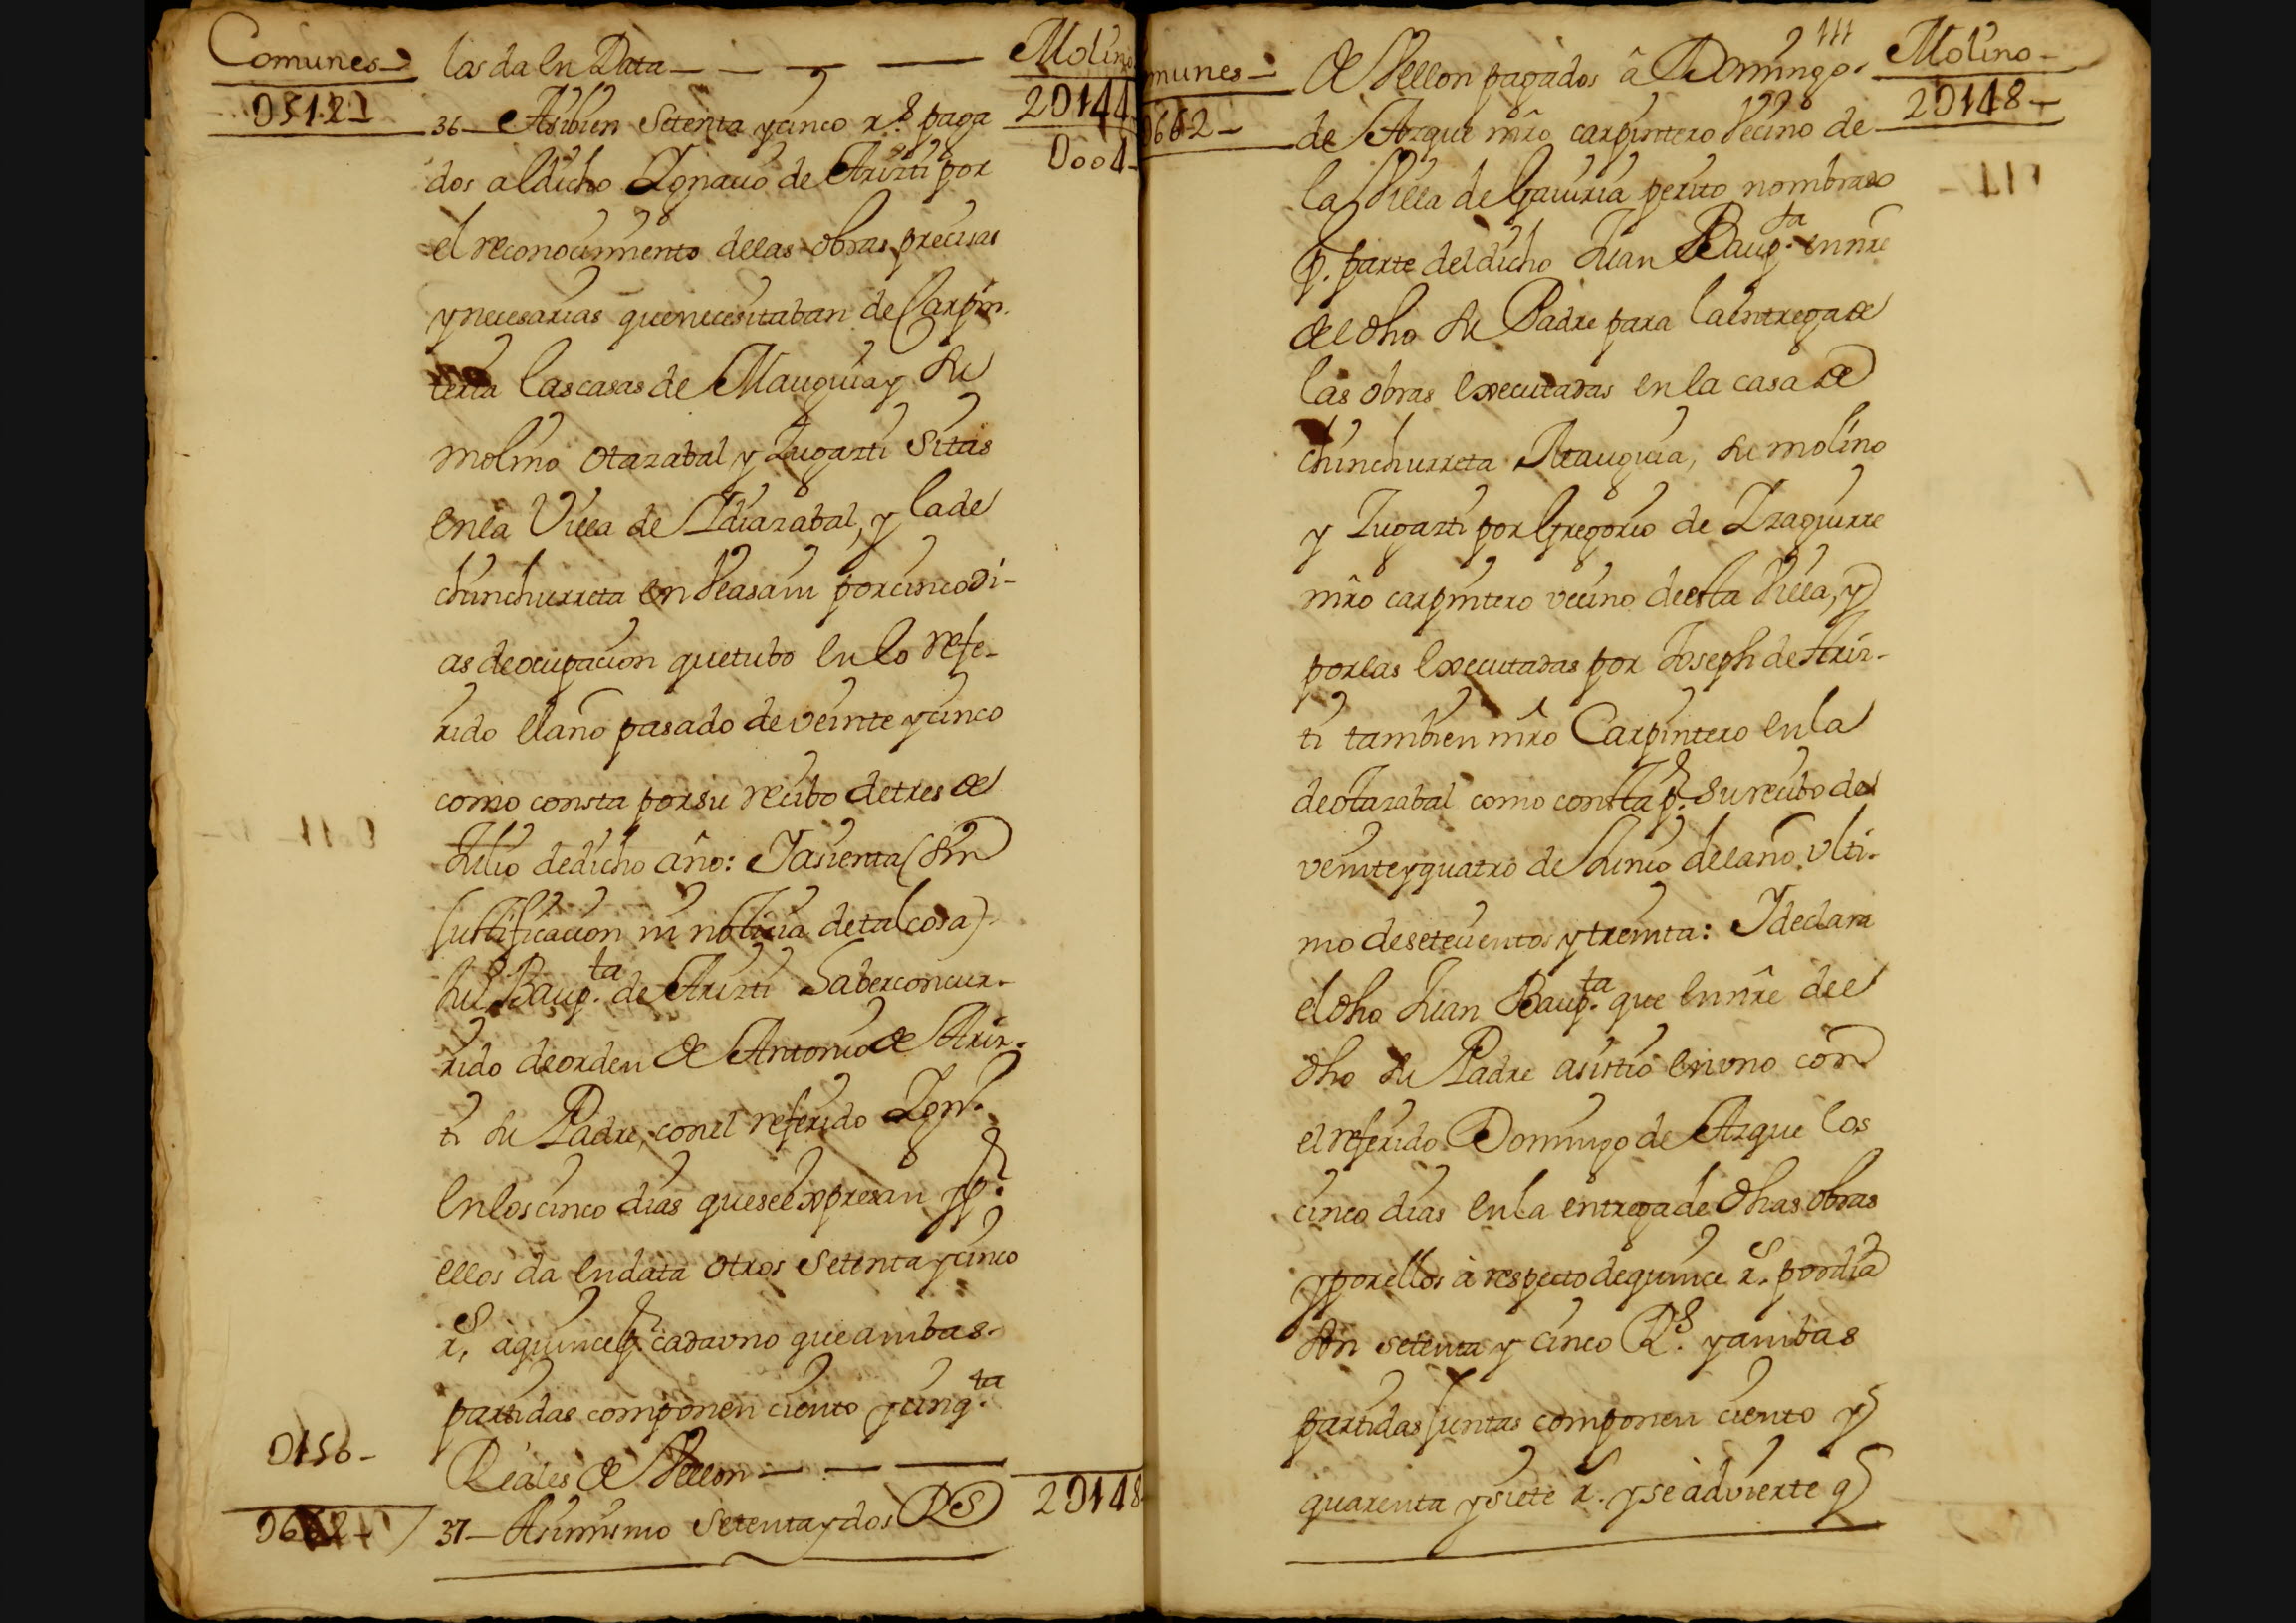 Comunes
0512-1
las da en Data
Molino
20144
0004-
36- Asibien Setenta y cinco r.s paga
dos al dicho Ignacio de Arizti por
el reconocimiento de las obras precisas
y necesarias que necesitaban de Carpin-
teria las casas de Mauguia y su
molino Otazabal y Zugazti Sitas
en la Villa de Idiazabal, y la de
chinchurreta en Veasain por cinco di-
as de ocupacion que tubo en lo refe-
rido el año pasado de veinte y cinco
como consta por su recibo de tres de
Julio de dicho año: Y asienta (sin
justificacion ni noticia de tal cosa)
Ju.n Baup.ta de Arizti haber concur-
rido de orden de Antonio de Ariz-
ti su Padre, con el referido Ign.o
en los cinco dias que se expresan y p.r
ellos da en data otros Setenta y cinco
r.s a quince p.r cada uno que ambas
partidas componen ciento y cinq.ta
Reales de Vellon
0150-
0662-
37- Asimismo Setenta y dos R.S
20148
munes
0662-
111
Molino
20148-
de Vellon pagados â Domingo
de Azque mrô carpintero Vecino de
la Villa de Gaviria perito nombrado
p. parte del dicho Juan Baup.ta en nrê
del dho su Padre para la entrega de
las obras executadas en la casa de
chinchurreta Mauguia, su molino
y Zugazti por Gregorio de Izaguirre
mrô carpintero vecino de esta Villa, y
por las executadas por Joseph de Ariz-
ti tambien mrô Carpintero en la
de otazabal como consta p.r su recibo de
veinte y quatro de Junio del año ulti-
mo de setecientos y treinta: Y declara
el dho Juan Baup.ta que en nrê de el
dho su Padre asistio en uno con
el referido Domingo de Azque los
cinco dias en la entrega de dhas obras
y por ellos à respecto de quince r.s por dia
son setenta y cinco R.s y ambas
partidas juntas componen ciento y
quarenta y siete r.s y se advierte q